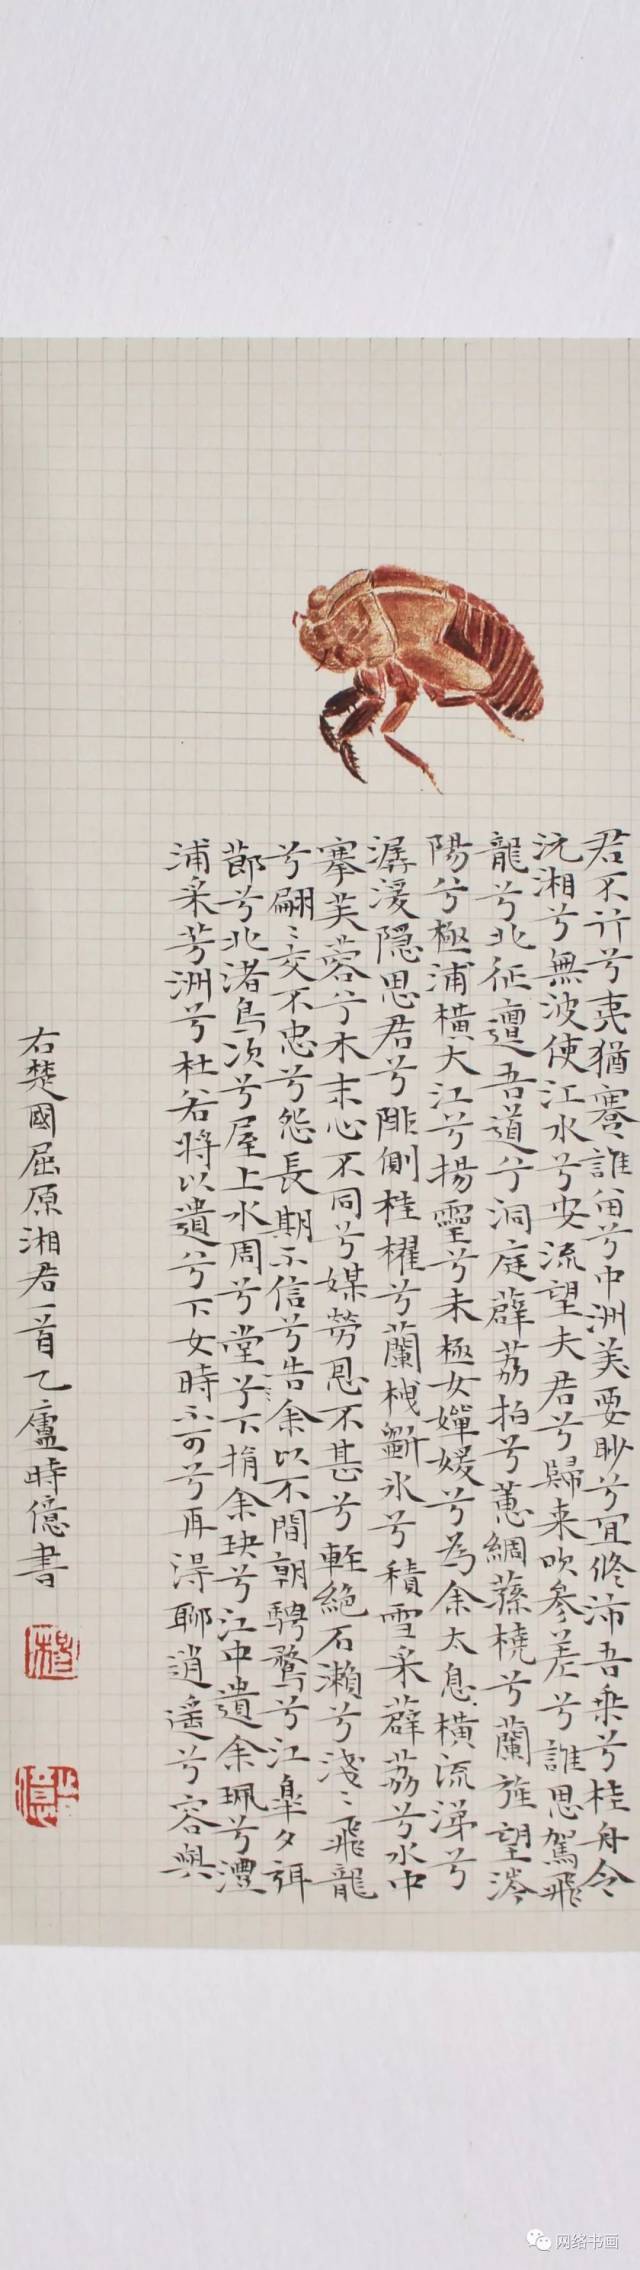 君不行兮夷猶蹇誰留兮中洲美要眇兮宜修沛吾乘兮桂舟令
沅湘兮無波使江水兮安流望夫君兮歸来吹參差兮誰思駕飛
龍兮北征邅吾道兮洞庭薜荔拍兮蕙綢蓀橈兮蘭旌望涔
陽兮極浦橫大江兮揚靈兮未極女嬋媛兮為余太息橫流涕兮
潺湲隱思君兮陫側桂櫂兮蘭枻斵氷兮積雪采薜荔兮水中
搴芙蓉兮木末心不同兮媒勞恩不甚兮輕絕石瀨兮淺〻飛龍
兮翩〻交不忠兮怨長期不信兮告余以不閒朝騁騖兮江皋夕弭
節兮北渚鳥次兮屋上水周兮堂兮下捐余玦兮江中遺余珮兮澧
浦采芳洲兮杜若將以遺兮下女時不可兮再淂聊逍遥兮容與
右楚國屈原湘君一首乙廬時億書
网络书画